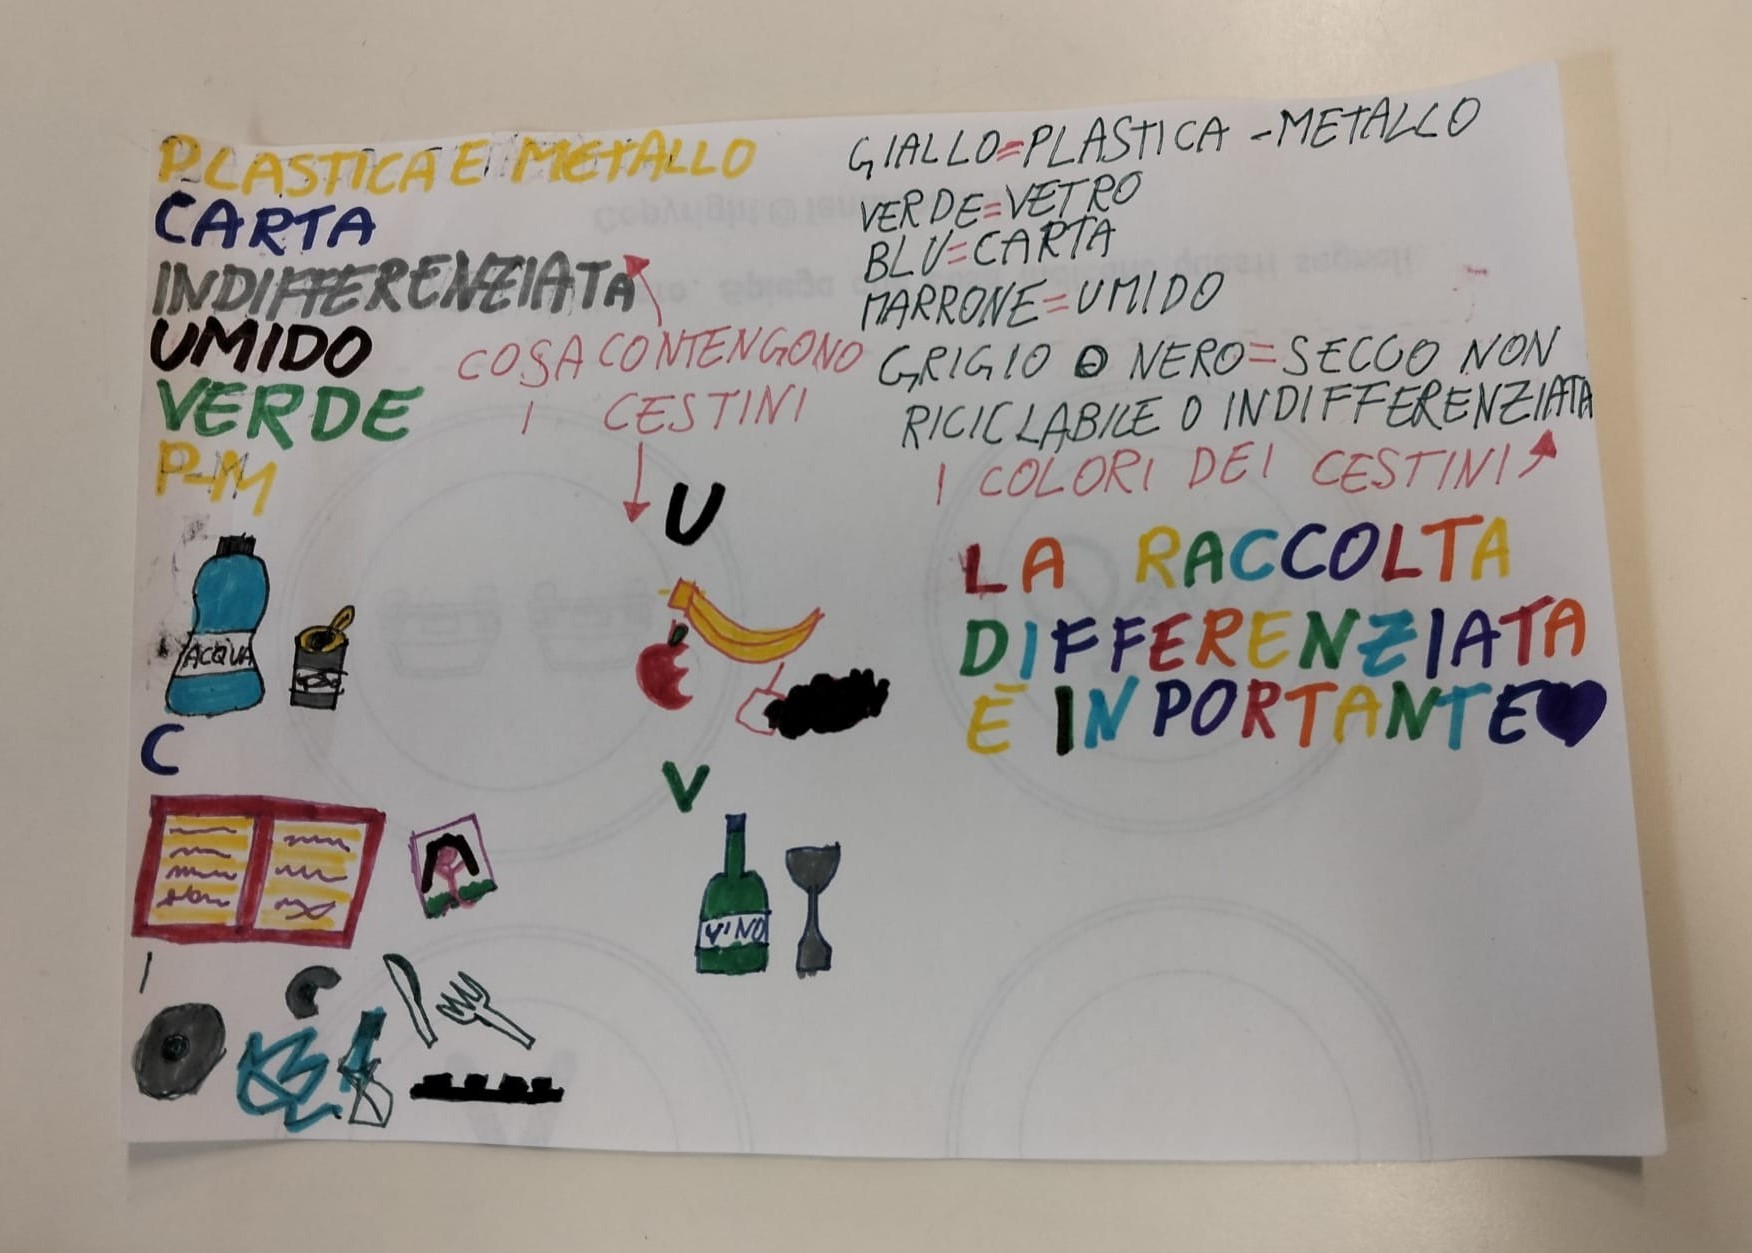 PLASTICA E METALLO
CARTA
INDIFFERENZIATA
UMIDO
VERDE
COSA CONTENGONO
I CESTINI
P-M
ACQUA
C
I
U
V
VINO
GIALLO=PLASTICA -METALLO
VERDE=VETRO
BLU=CARTA
MARRONE=UMIDO
GRIGIO O NERO=SECCO NON
RICICLABILE O INDIFFERENZIATA
I COLORI DEI CESTINI
LA RACCOLTA
DIFFERENZIATA
È INPORTANTE